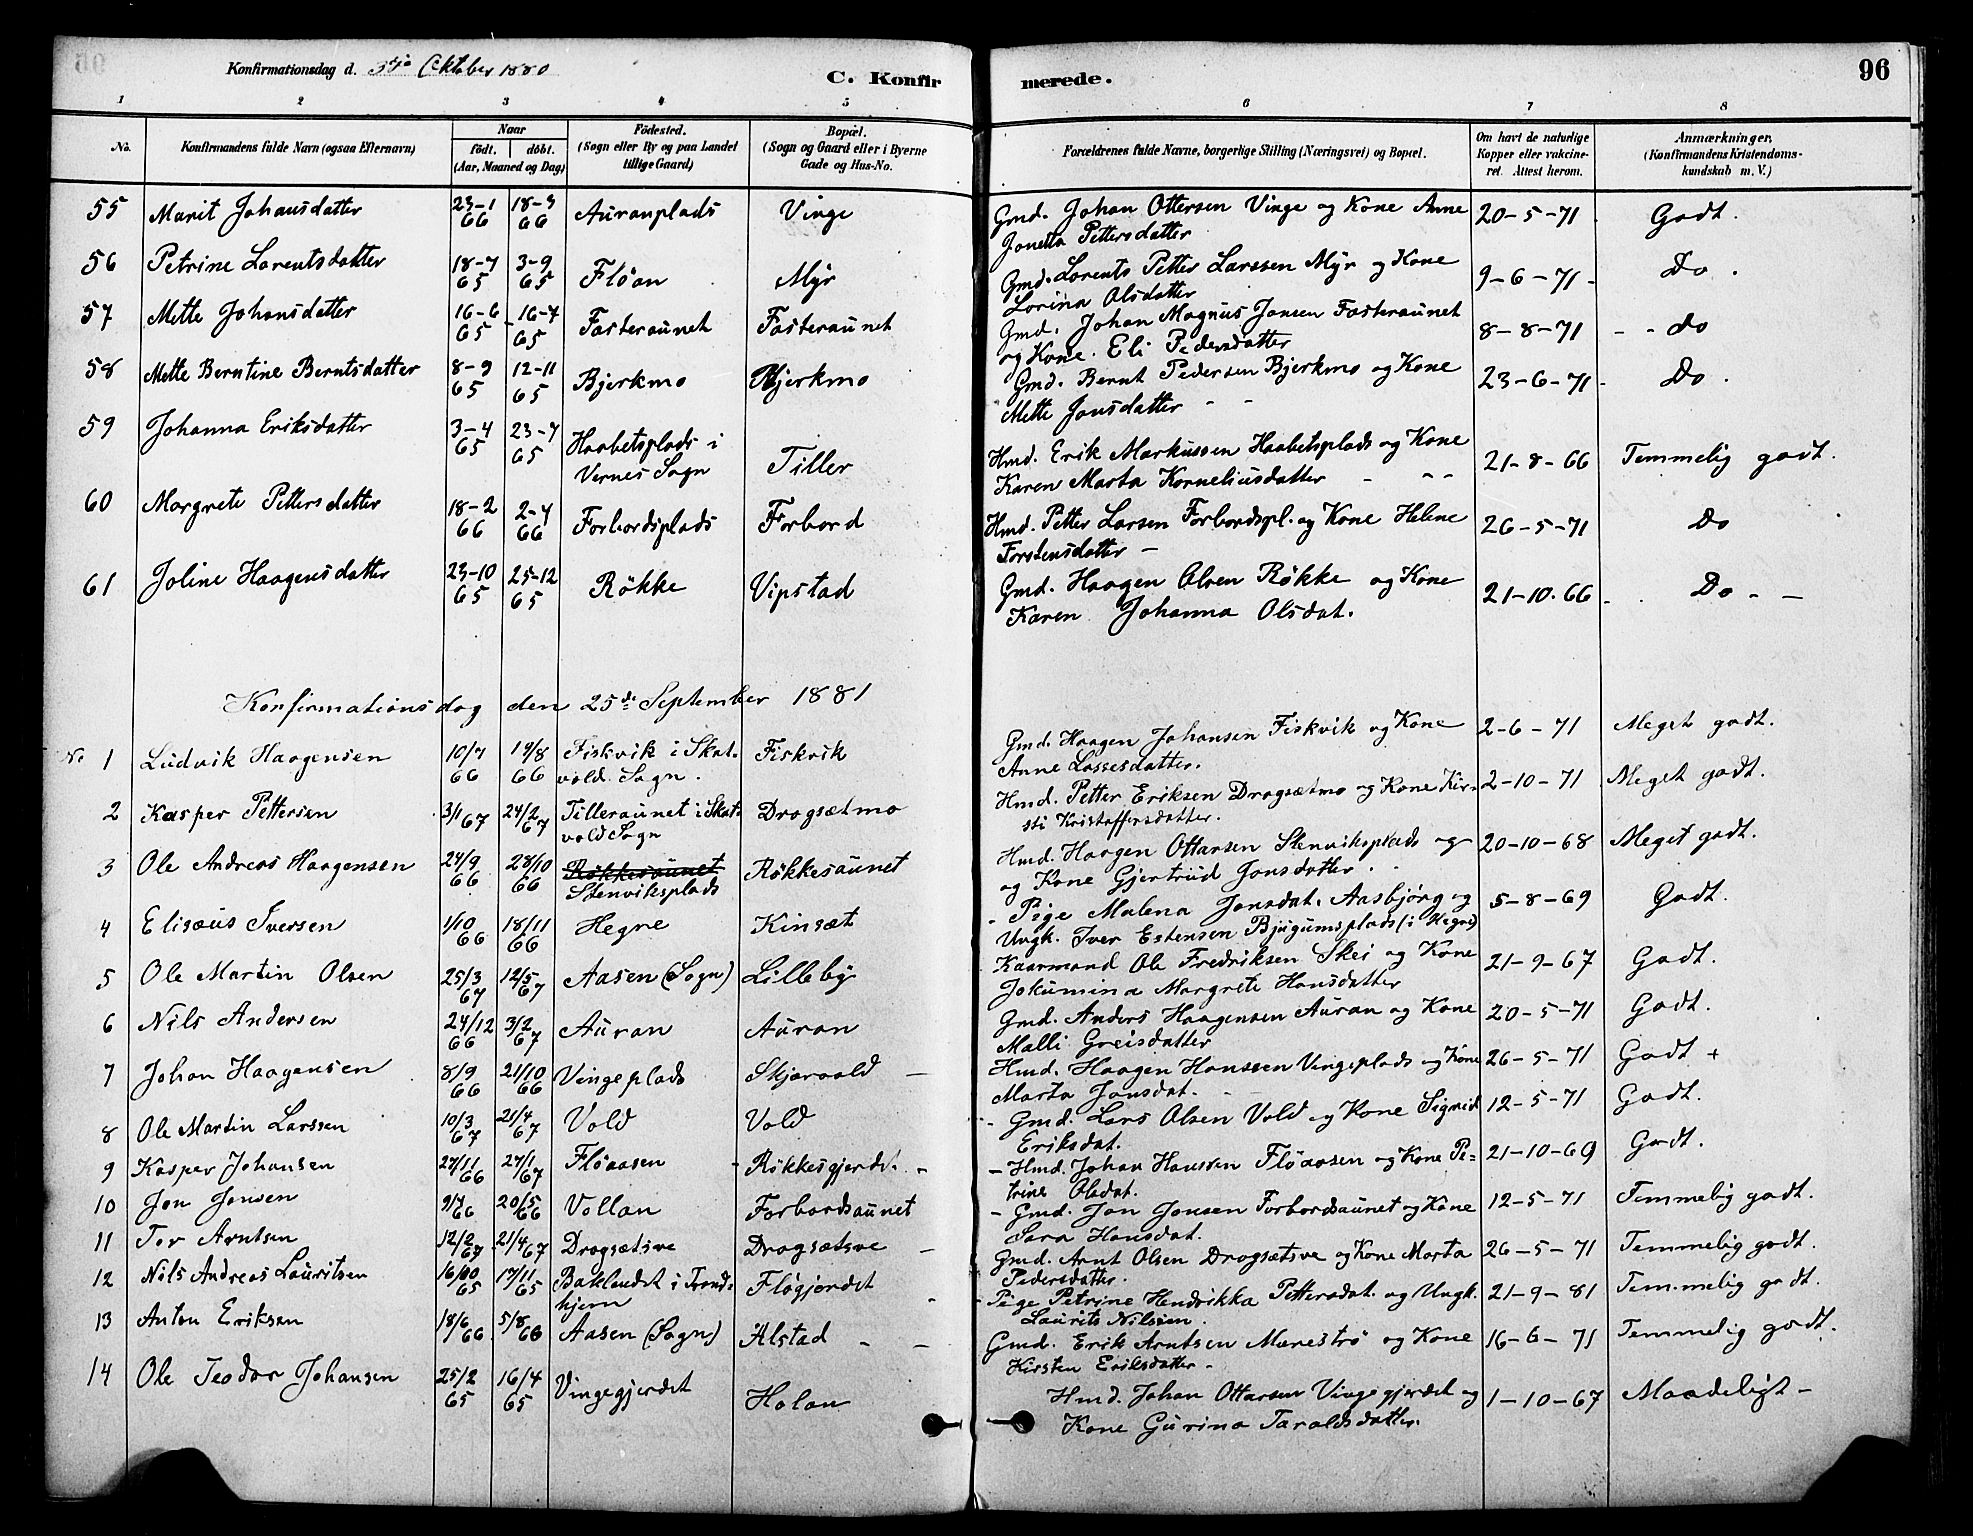 Konfirmationsdag d. 3die Oktober 1880
C. Konfirmerede.
96
1 2 3 4 5 6 7 8
No. Konfirmandens fulde Navn (ogsaa Efternavn) Naar födt. döbt. (Aar, Maaned og Dag) Födested. (Sogn eller By og paa Landet tillige Gaard) Bopæl. (Sogn og Gaard eller i Byerne Gade og Hus-No. Forældrenes fulde Navne, borgerlige Stilling (Næringsvei) og Bopæl. Om havt de naturlige Kopper eller vakcineret. Attest herom. Anmærkninger, (Konfirmandens Kristendomskundskab m. V.)
55 Marit Johansdatter 23-1 66 18-3 66 Auranplads Vinge Gmd. Johan Ottersen Vinge og Kone Anne 20-5-71 Godt.
Jonetta Pettersdatter
56 Petrine Lorentsdatter 18-7 65 3-9 65 Flöan Myr Gmd. Lorents Petter Larssen Myr og Kone 9-6-71 Do.
Lorina Olsdatter
57 Mette Johansdatter 16-6 65 16-7 65 Fasteraunet Fasteraunet Gmd. Johan Magnus Jonsen Fasteraunet 8-8-71 do
og Kone. Eli Pedersdatter
58 Mette Berntine Berntsdatter 8-9 65 12-11 65 Bjerkmo Bjerkmo Gmd. Bernt Pedersen Bjerkmo og Kone 23-6-71 Do.
Mette Jonsdatter
59 Johanna Eriksdatter 3-4 65 23-7 65 Haabetsplads i Vernes Sogn Tiller Hmd. Erik Markussen Haabetsplads og Kone 21-8-66 Temmelig godt.
Karen Marta Korneliusdatter
60 Margrete Pettersdatter 18-2 66 2-4 66 Forbordsplads Forbord Hmd. Petter Larsen Forbordspl. og Kone Helene 26-5-71 Do
Torstensdatter
61 Joline Haagensdatter 23-10 65 25-12 65 Rökke Vipstad Gmd. Haagen Olsen Rökke og Kone 21-10-66 Do
Karen Johanna Olsdat.
Konfirmationsdag den 25de September 1881
No 1 Ludvik Haagensen 10/7 66 19/8 66 Fiskvik i Skatvold Sogn. Fiskvik Gmd. Haagen Johansen Fiskvik og Kone 2-6-71 Meget godt.
Anne Lassesdatter.
2 Kasper Pettersen 3/1 67 24/2 67 Tilleraunet i Skatvold Sogn Drogsætmo Hmd. Petter Eriksen Drogsætmo og Kone Kir= 2-10-71 Meget godt.
sti Kristoffersdatter.
3 Ole Andreas Haagensen 24/9 66 28/10 66 Rökkesaunet Stenviksplads Rökkesaunet Hmd. Haagen Ottarsen Stenviksplads og 20-10-68 Meget godt.
og Kone Gjertrud Jonsdatter.
4 Elisæus Iversen 1/10 66 18/11 66 Hegre Kinsæt Pige Malena Jonsdat. Aasbjörg og 5-8-69 Godt.
Ungk. Iver Estensen Bjugumsplads (i Hegre)
5 Ole Martin Olsen 25/3 67 12/5 67 Aasen (Sogn) Lilleby Kaarmand Ole Fredriksen Skei og Kone 21-9-67 Godt.
Jokumina Margrete Hansdatter
6 Nils Andersen 24/12 66 3/2 67 Auran Auran Gmd. Anders Haagensen Auran og Kone 20-5-71 Godt.
Malli Greisdatter
7 Johan Haagensen 8/9 66 21/10 66 Vingeplads Skjervold Hmd. Haagen Hanssen Vingeplads og Kone 26-5-71 Godt +
Marta Jonsdat.
8 Ole Martin Larssen 10/3 67 21/4 67 Vold Vold Gmd. Lars Olsen Vold og Kone Sigrid 12-5-71 Godt.
Eriksdat.
9 Kasper Johansen 27/11 66 27/1 67 Flöaasen Rökkesgjerdet. Hmd. Johan Hanssen Flöaasen og Kone Pe= 21-10-69 Godt.
trine Olsdat.
10 Jon Jonsen 9/4 66 20/5 66 Vollan Forbordsaunet Gmd. Jon Jonsen Forbordsaunet og Kone 12-5-71 Temmelig godt.
Sara Hansdat.
11 Tor Arntsen 12/2 67 21/4 67 Drogsætsve Drogsætsve Gmd. Arnt Olsen Drogsætsve og Kone Marta 26-5-71 Temmelig godt.
Pedersdatter.
12 Nils Andreas Lauritsen 16/10 65 17/11 65 Baklandet i Trondhjem Flögjerdet Pige Petrine Hendrikka Pettersdat. og Ungk. 21-9-81 Temmelig godt.
Laurits Nilssen.
13 Anton Eriksen 18/6 66 5/8 66 Aasen (Sogn) Alstad Gmd. Erik Arntsen Mæreströ og Kone 16-6-71 Temmelig godt.
Kirsten Eriksdatter
14 Ole Teodor Johansen 25/2 65 16/4 65 Vingegjerdet Holan Hmd. Johan Ottarsen Vingegjerdet og 1-10-67 Maadeligt
Kone Gurina Taraldsdatter.